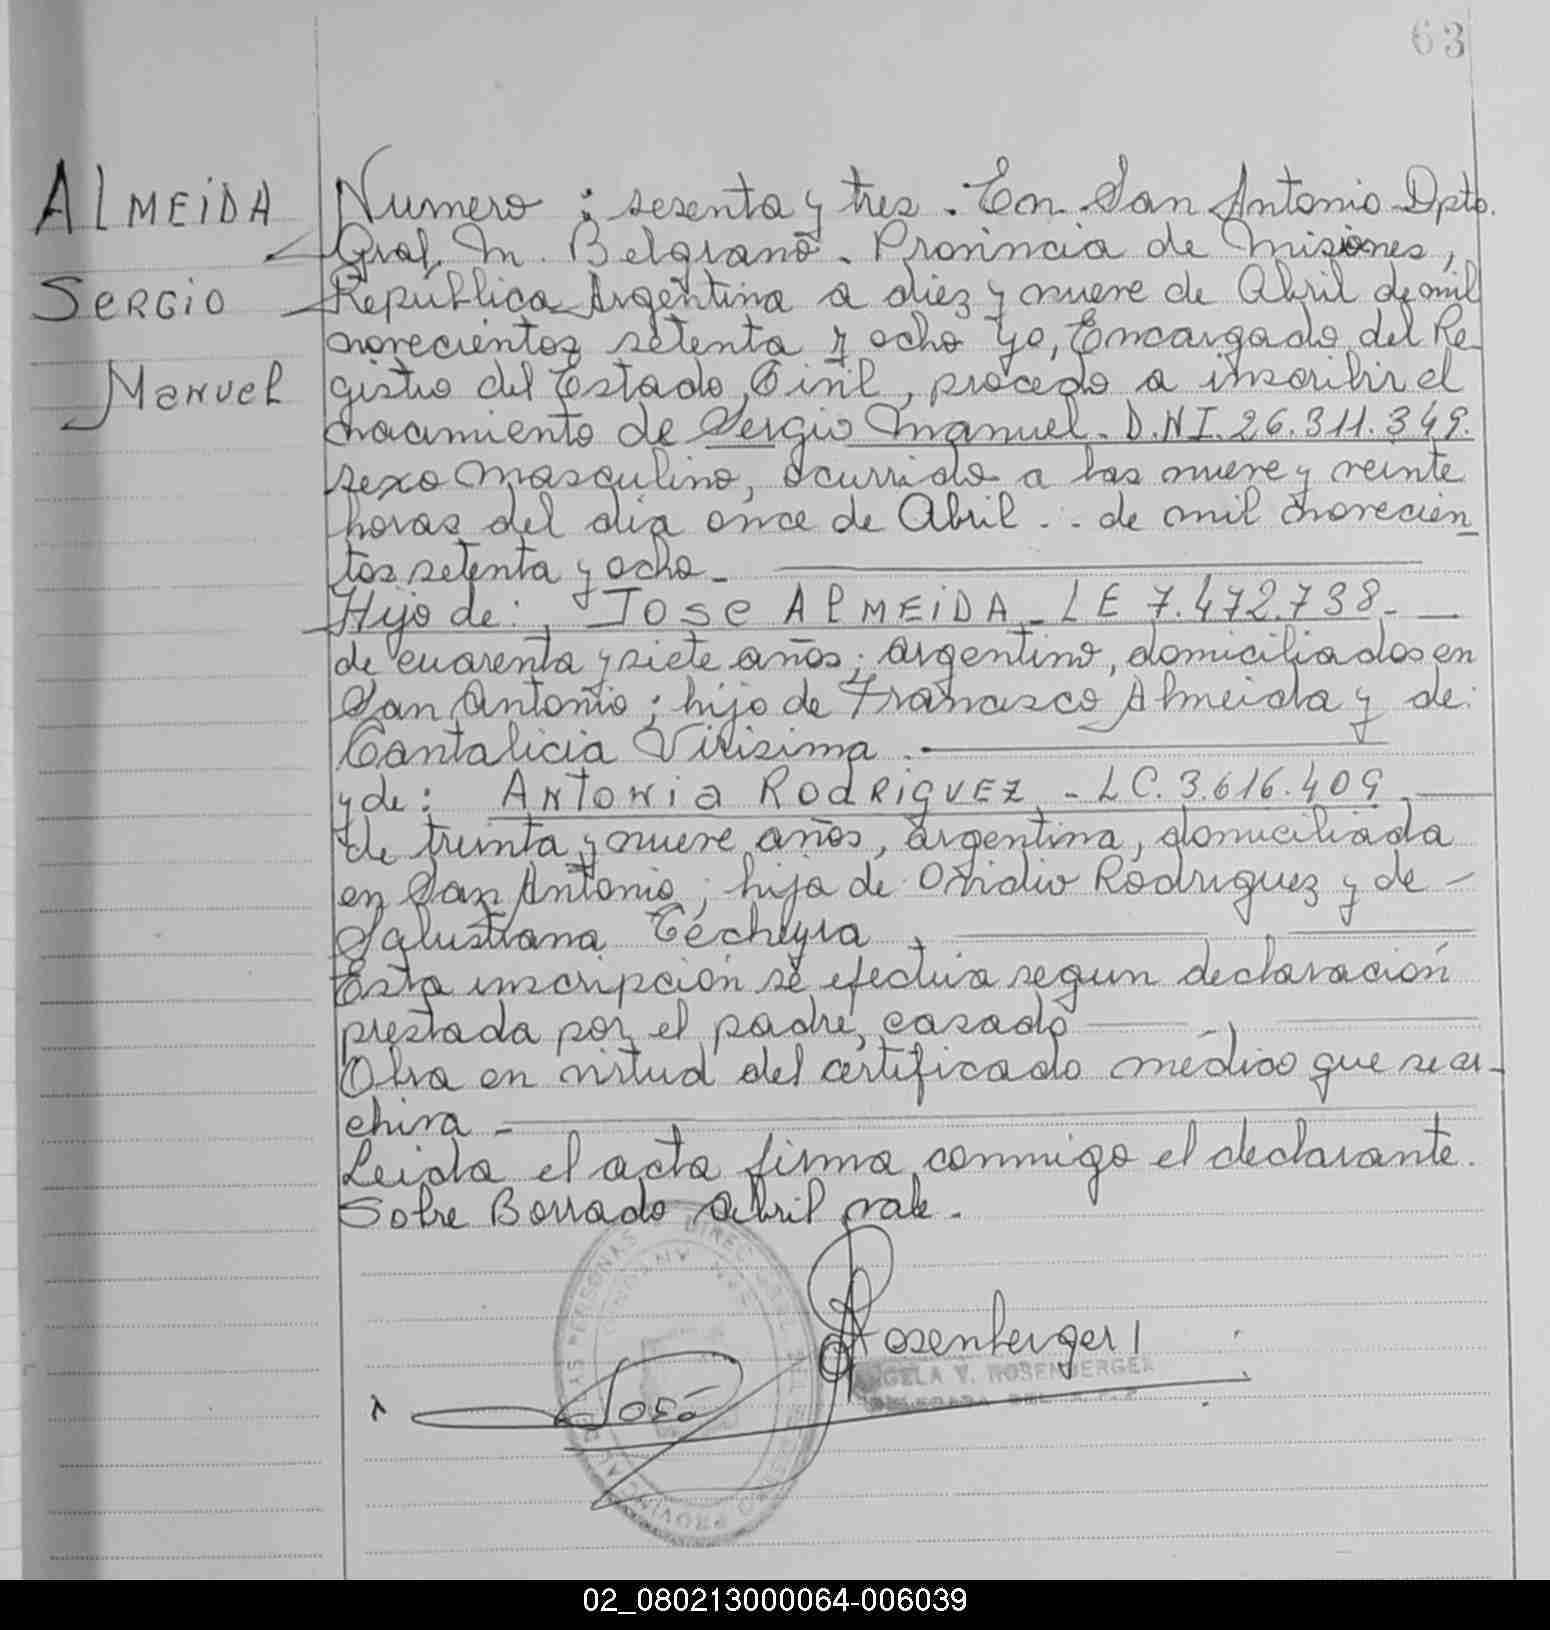 63
ALMEiDA
SERGiO
MANUEL
Numero : sesenta y tres . En San Antonio Dpto.
Gral. M. Belgrano - Provincia de Misiones,
República Argentina a diez y nueve de Abril de mil
novecientos setenta y ocho yo, Encargado del Re-
gistro del Estado Civil, procedo a inscribir el
nacimiento de Sergio Manuel - D.N.I. 26.311.349.
sexo masculino, ocurrido a las nueve y veinte
horas del dia once de Abril .. de mil novecien
tos setenta y ocho -
Hijo de : JOSE ALMEiDA - LE 7.472.738 -
de cuarenta y siete años ; argentino, domiciliados en
San Antonio ; hijo de Francisco Almeida y de :
Cantalicia Virisima .
y de : ANTONiA RODRiGUEZ - LC. 3.616.409
de treinta y nueve años, argentina, domiciliada
en San Antonio ; hija de Ovidio Rodriguez y de -
Salustiana Techeyra ,
Esta inscripción se efectúa segun declaración
prestada por el padre, casado
Obra en virtud del certificado médico que se ar-
chiva -
Leida el acta firma conmigo el declarante.
Sobre Borrado Abril vale .
Rosenberger
José
ANGELA V. ROSENBERGER
DELEGADA DEL
02_080213000064-006039